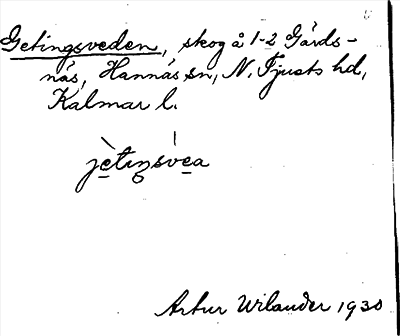 Getingsveden, skog å 1-2 Gårds-
näs, Hannäs sn, N. Tjusts hd,
Kalmar l.
jètiŋsvéa
Artur Wilander 1930